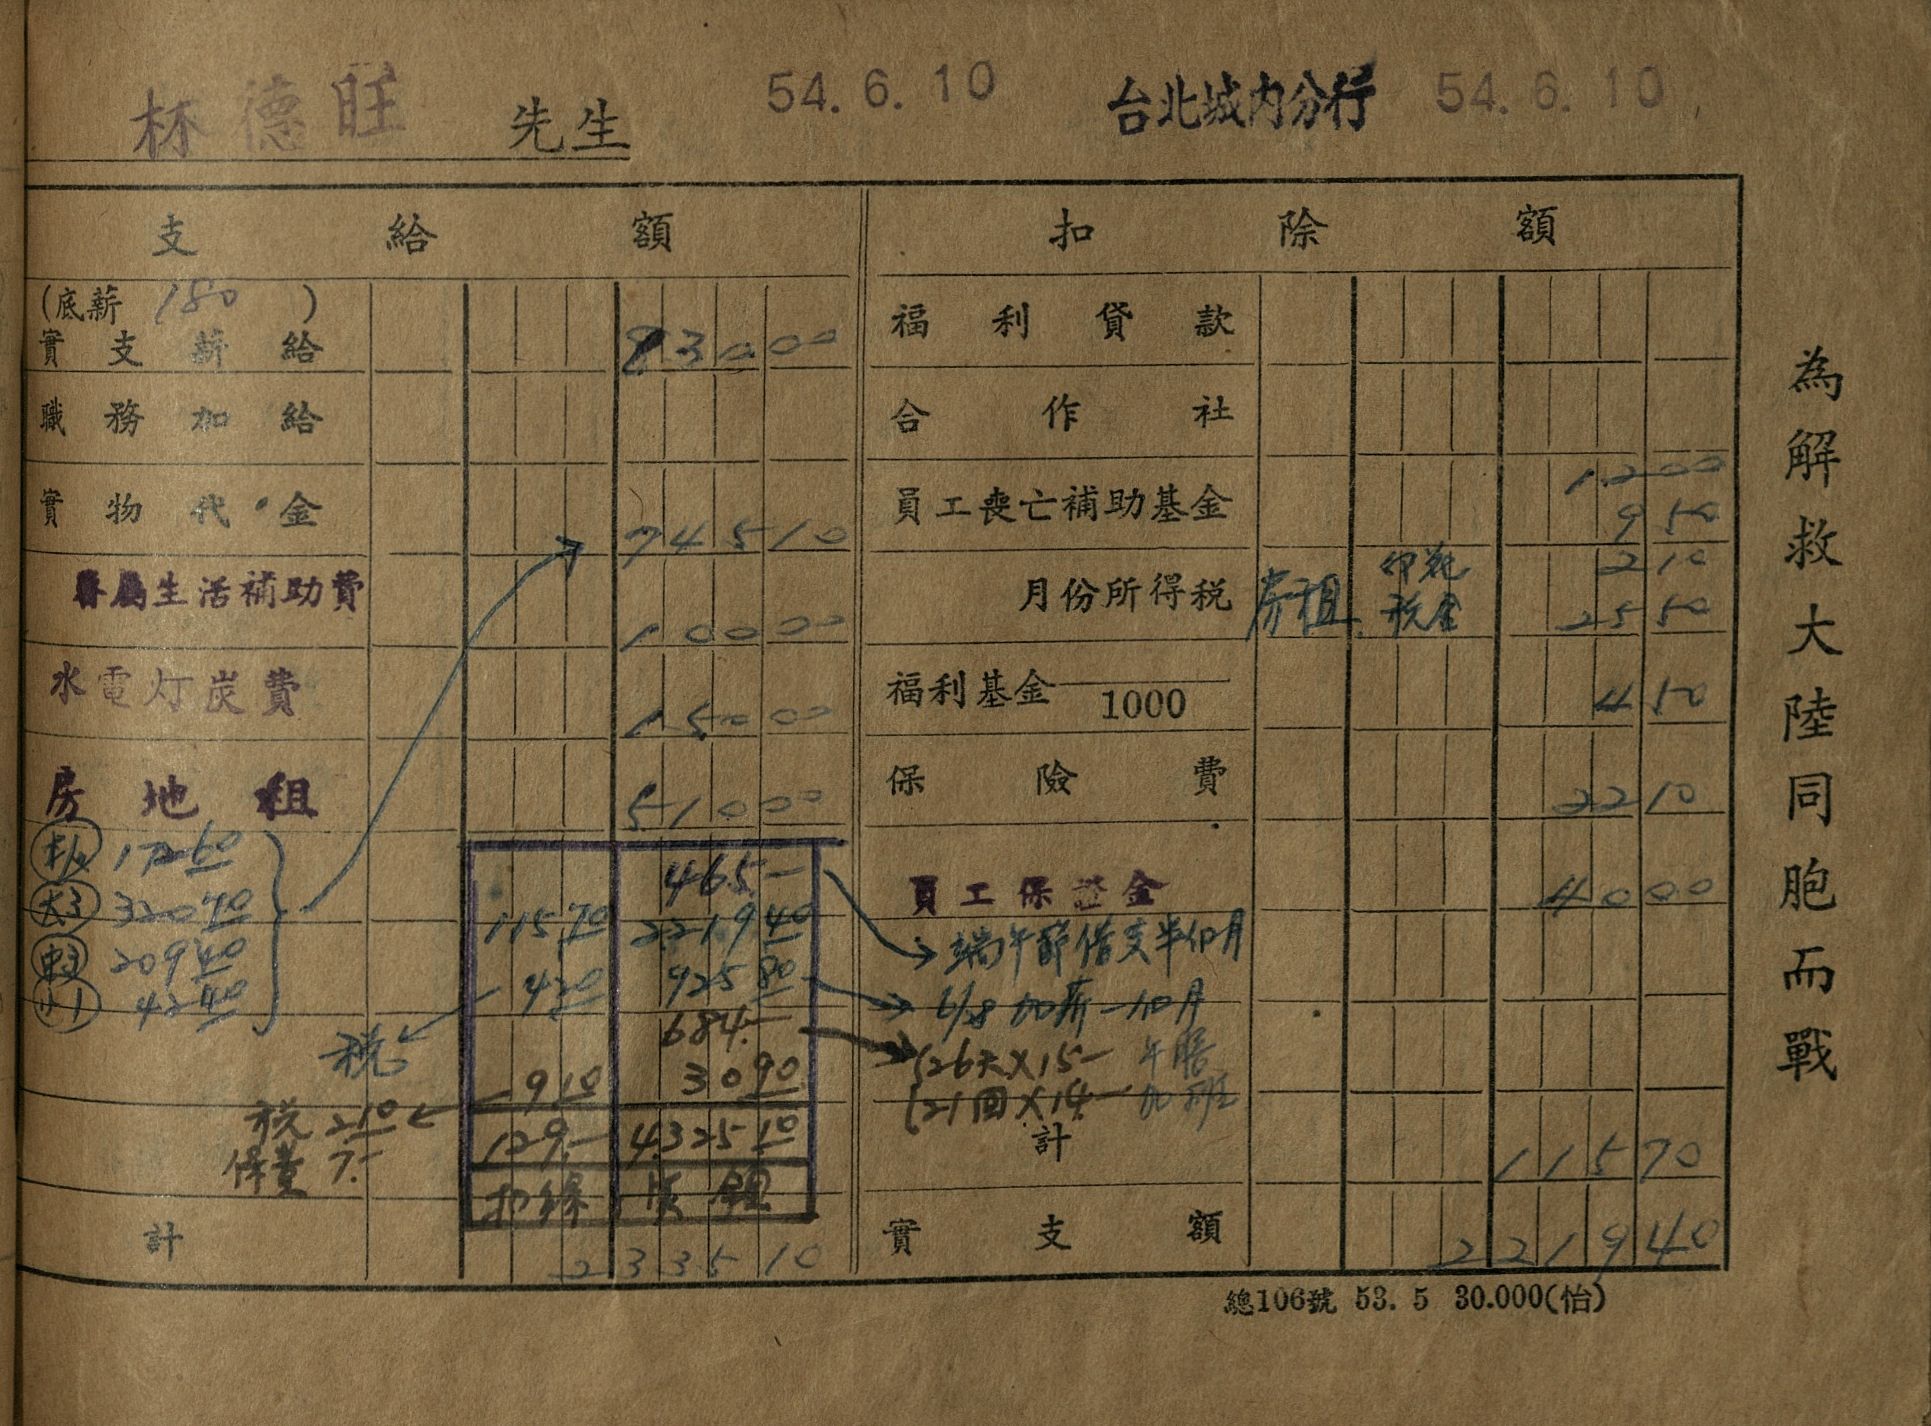 林德旺 先生 54.6.10 台北城內分行 54.6.10
支給額 扣除額
(底薪 180 )
實支薪給 830 00
職務加給
實物代金 745 10
眷屬生活補助費 100 00
水電灯炭費 150 00
房地租 510 00
172 60
大3 320 70
中3 209 40
小1 42 40
稅
稅 2 10
保費 7.-
計 2335 10
465.-
115 70 2219 40
4 20 925 80
684.-
9 10 30 90
129.- 4325 10
扣除
福利貸款
合作社
12 00
員工喪亡補助基金 9 50
印花 2 10
月份所得税 房租 税金 25 50
福利基金 1000 4 50
保險費 22 10
員工保證金 40 00
端午節借支半個月
6/28 加薪一個月
26天×15-
21回×14- 加班
計 115 70
實支額 2219 40
總106號 53. 5 30.000(怡)
為解救大陸同胞而戰